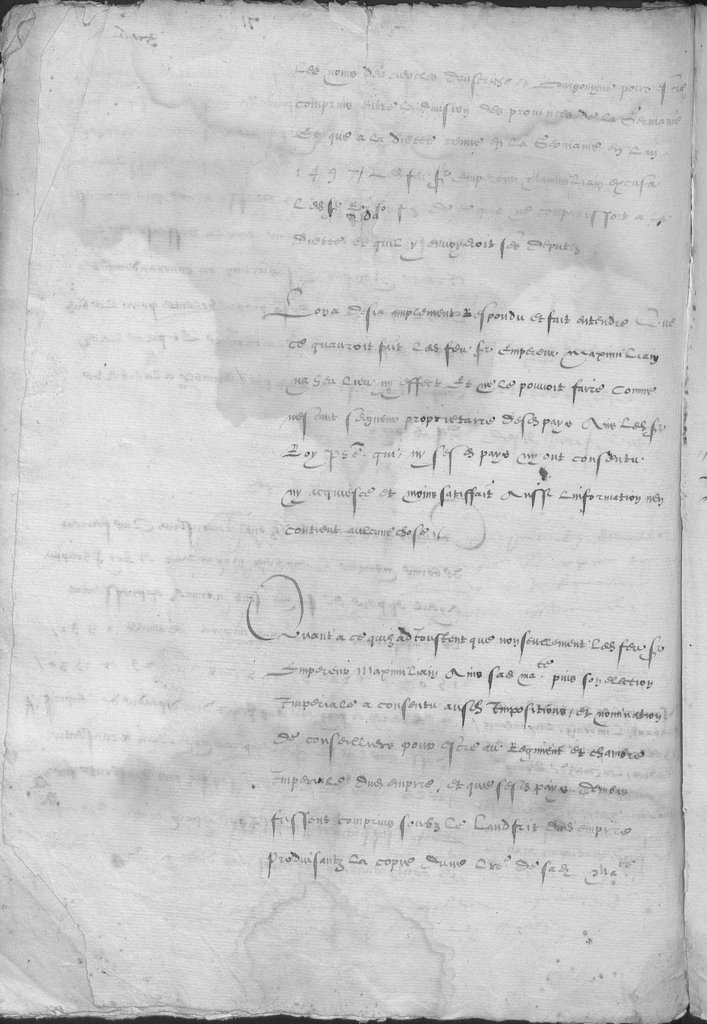 Les noms des cercles daustrice et bourgoigne pour estre
comprins entre la division des provinces de la Germanie
Et que a la diette tenue en la Germanie en lan
1497 Led feu sr empereur Maximilian excusa
Led sr Roy de ce quil ne comparissoit a la
diette et quil y envoyeroit ses deputez
Lon a desia amplement Respondu et fait entendre Que
ce quauroit fait led feu sr Empereur Maximilian
na heu lieu ny effect Et ne le pouvoit faire Comme
nestant seigneur proprietaire desd pays Ains led sr
Roy pnt qui ny sesd pays ny ont consentu
ny acquiesce et moins satiffait Aussi linformation nen
contient aulcune chose
Quant a ce quilz adioustent que non seullement led feu sr
Empereur Maximilian Ains sad mate puis son election
Imperiale a consentu ausd Impositions, et nomination
de conseilliers pour estre au Regiment et chambre
Imperiale dud empire, et que sesd pays dembas
fussent comprins soubz le landfrit dud empire
produisantz la copie dune lre de sad Mate